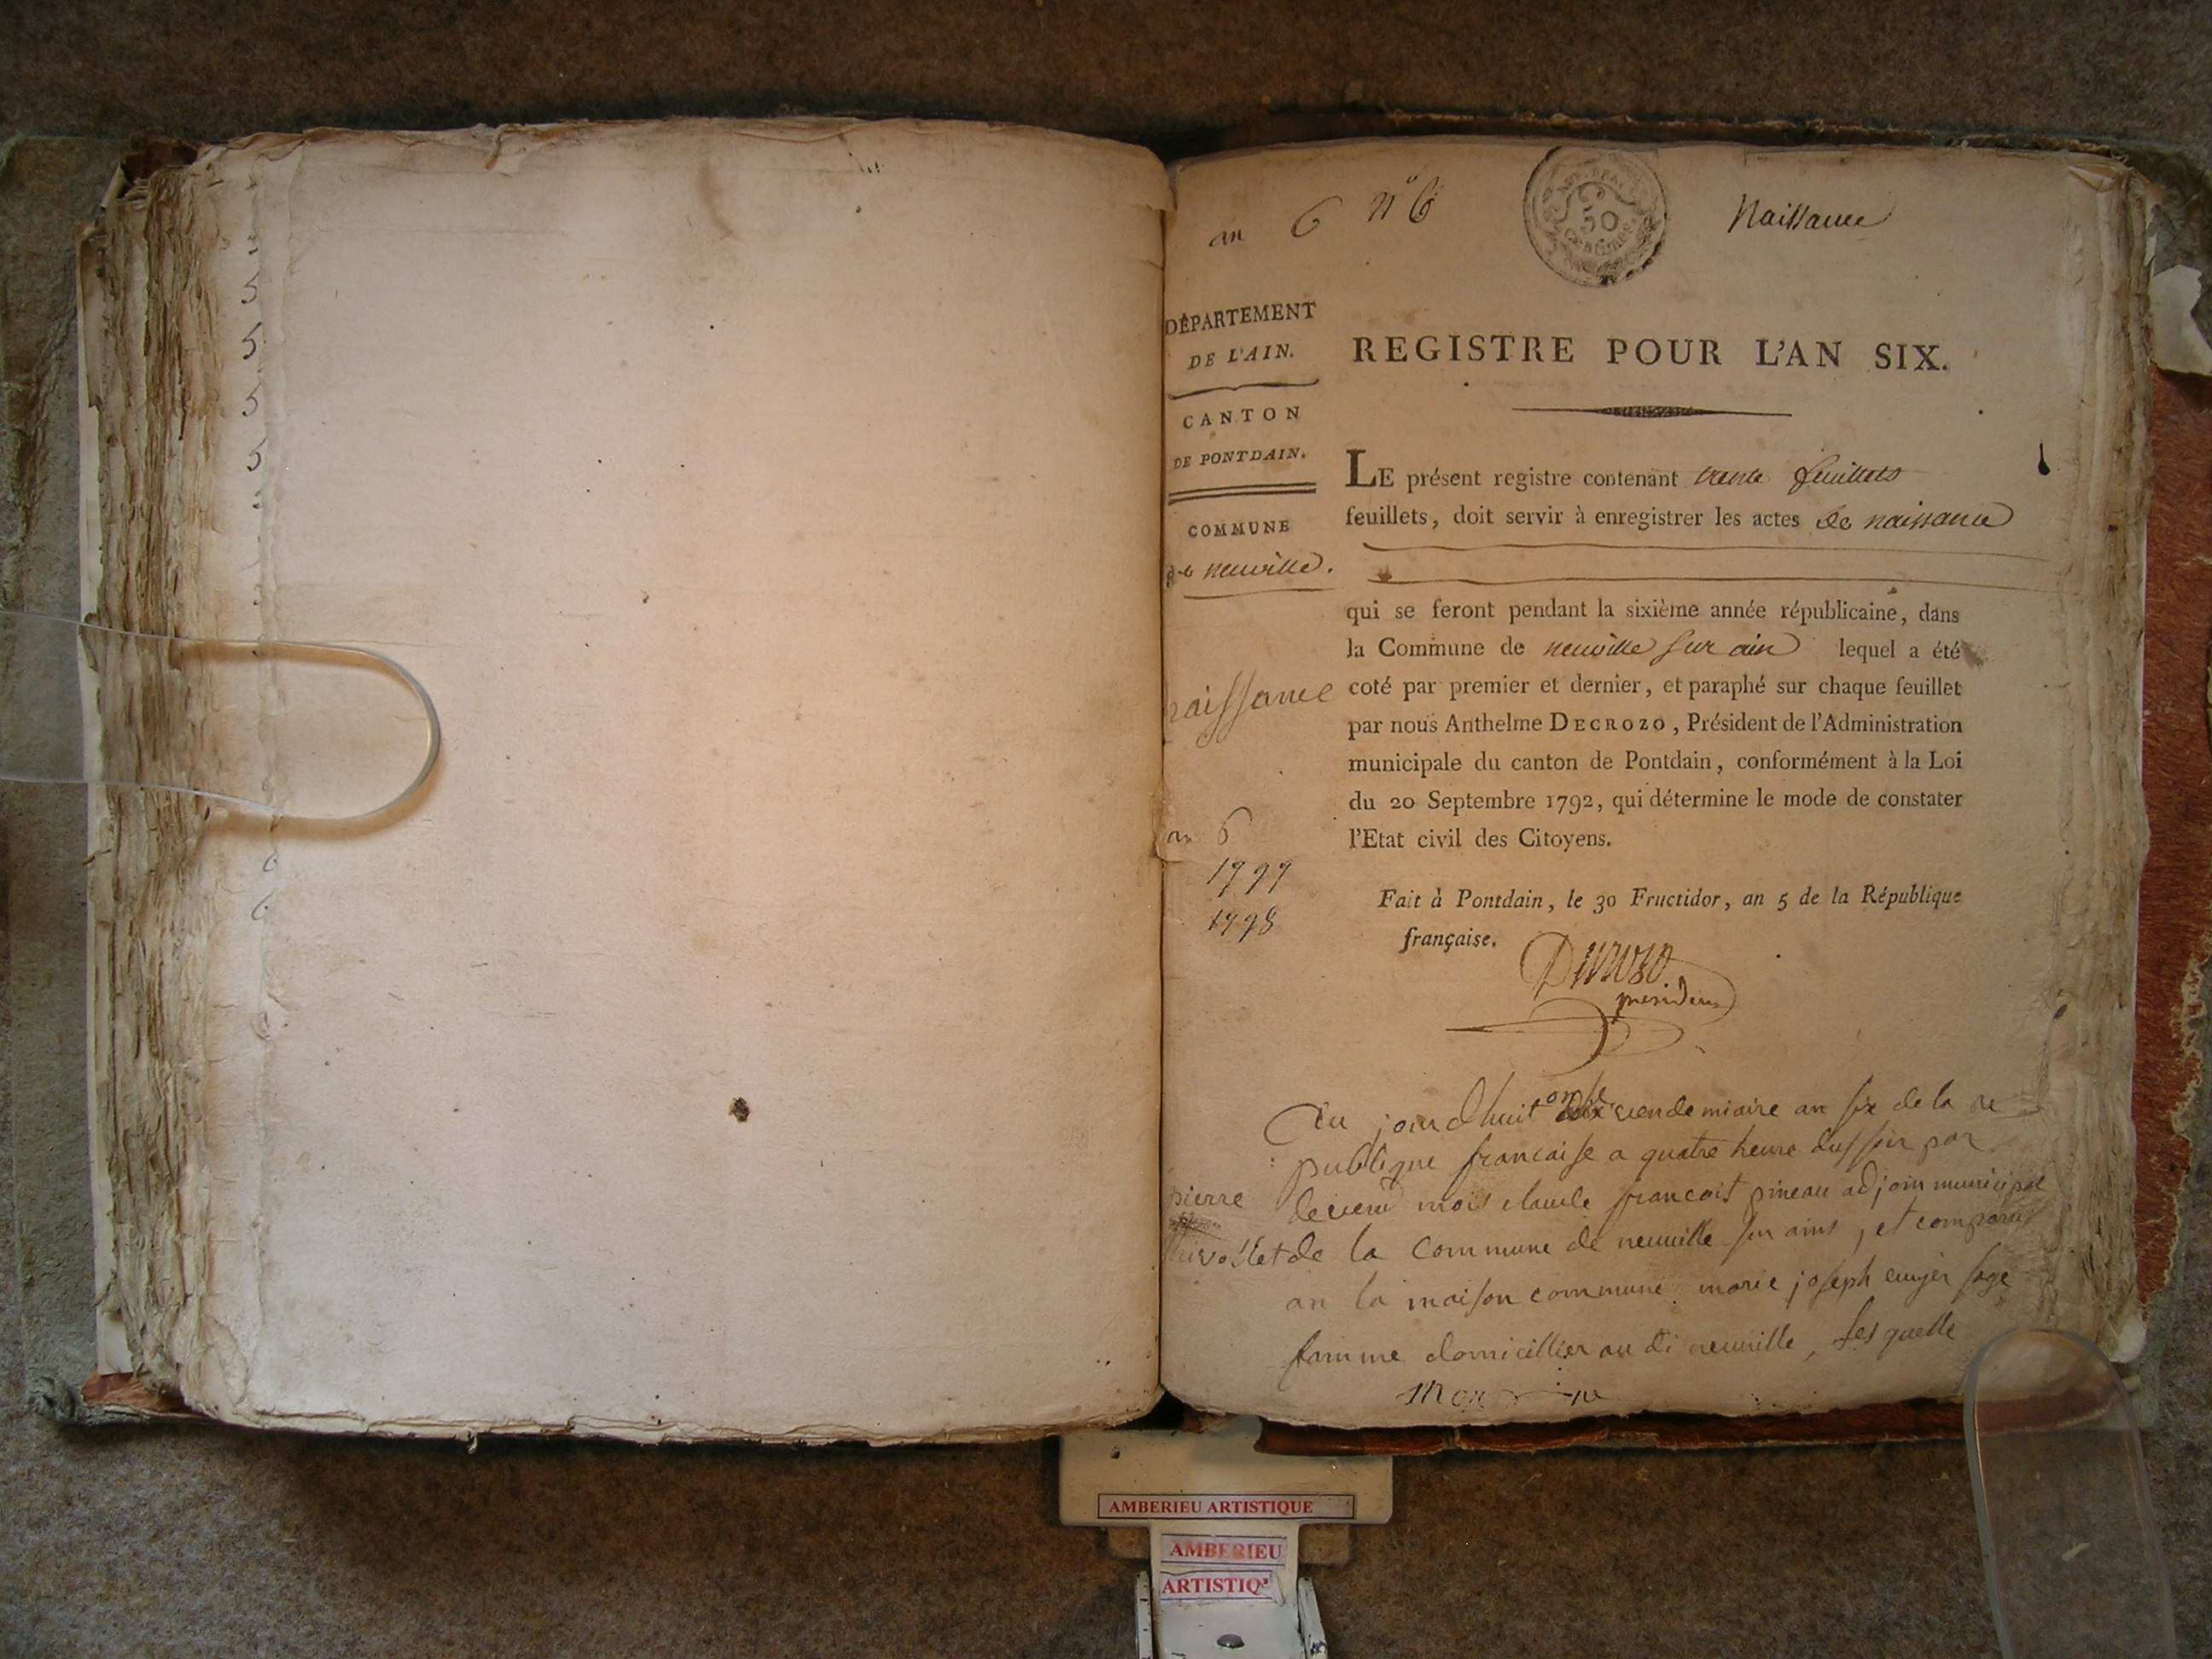 5
5
5
5
6
6
an 6 n° 6
50
Naissance
DÉPARTEMENT
DE L'AIN.
CANTON
DE PONTDAIN.
COMMUNE
de neuville.
naissance
an 6
1797
1798
REGISTRE POUR L'AN SIX.
LE présent registre contenant trente feuillets
feuillets, doit servir à enregistrer les actes de naissance
qui se feront pendant la sixième année républicaine, dans
la Commune de neuville sur ain lequel a été
coté par premier et dernier, et paraphé sur chaque feuillet
par nous Anthelme DECROZO, Président de l'Administration
municipale du canton de Pontdain, conformément à la Loi
du 20 Septembre 1792, qui détermine le mode de constater
l'Etat civil des Citoyens.
Fait à Pontdain, le 30 Fructidor, an 5 de la République
française.
Decrozo
president
1
pierre
Au jourdhuit onse vendemiaire an six de la re
publique francaise a quatre heure du soir par
devend mois claude francoit pineau adjoin municipal
de la commune de neuville sur ains, et comparut
an la maison commune marie joseph cuyer sage
famme domicillier au di neuville, lesquelle
AMBERIEU ARTISTIQUE
AMBERIEU
ARTISTIQ